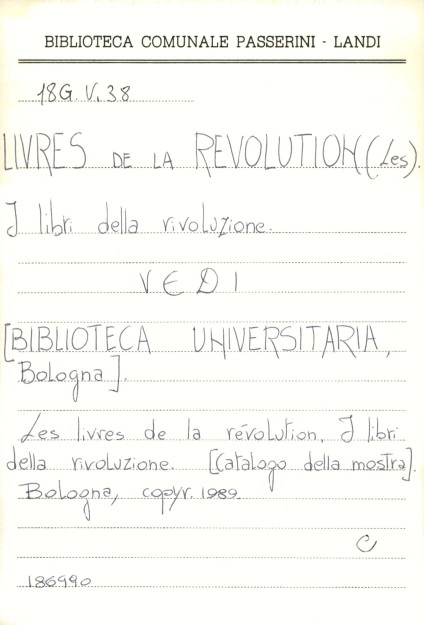 BIBLIOTECA COMUNALE PASSERINI - LANDI
18G. V. 38
LIVRES DE LA REVOLUTION (Les).
I libri della rivoluzione.
VEDI
[BIBLIOTECA UNIVERSITARIA,
Bologna].
Les livres de la révolution. I libri
della rivoluzione. [Catalogo della mostra].
Bologna, copyr. 1989.
C
186990